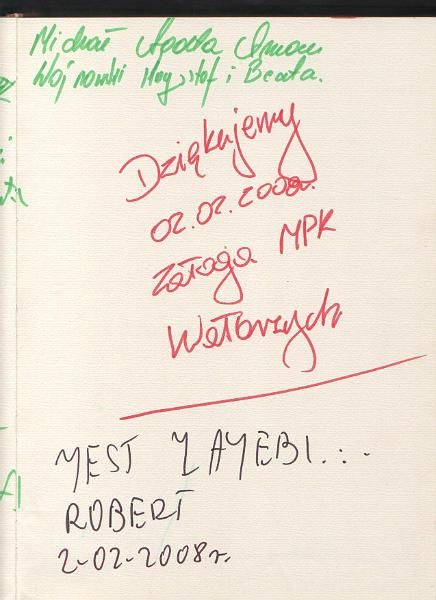 Michał Agata
Wojnowski Krzysztof i Beata.
Dziękujemy
02.02.2008r.
Załoga MPK
Wełtarzych
YEST ZAYEBI...
ROBERT
2-02-2008r.